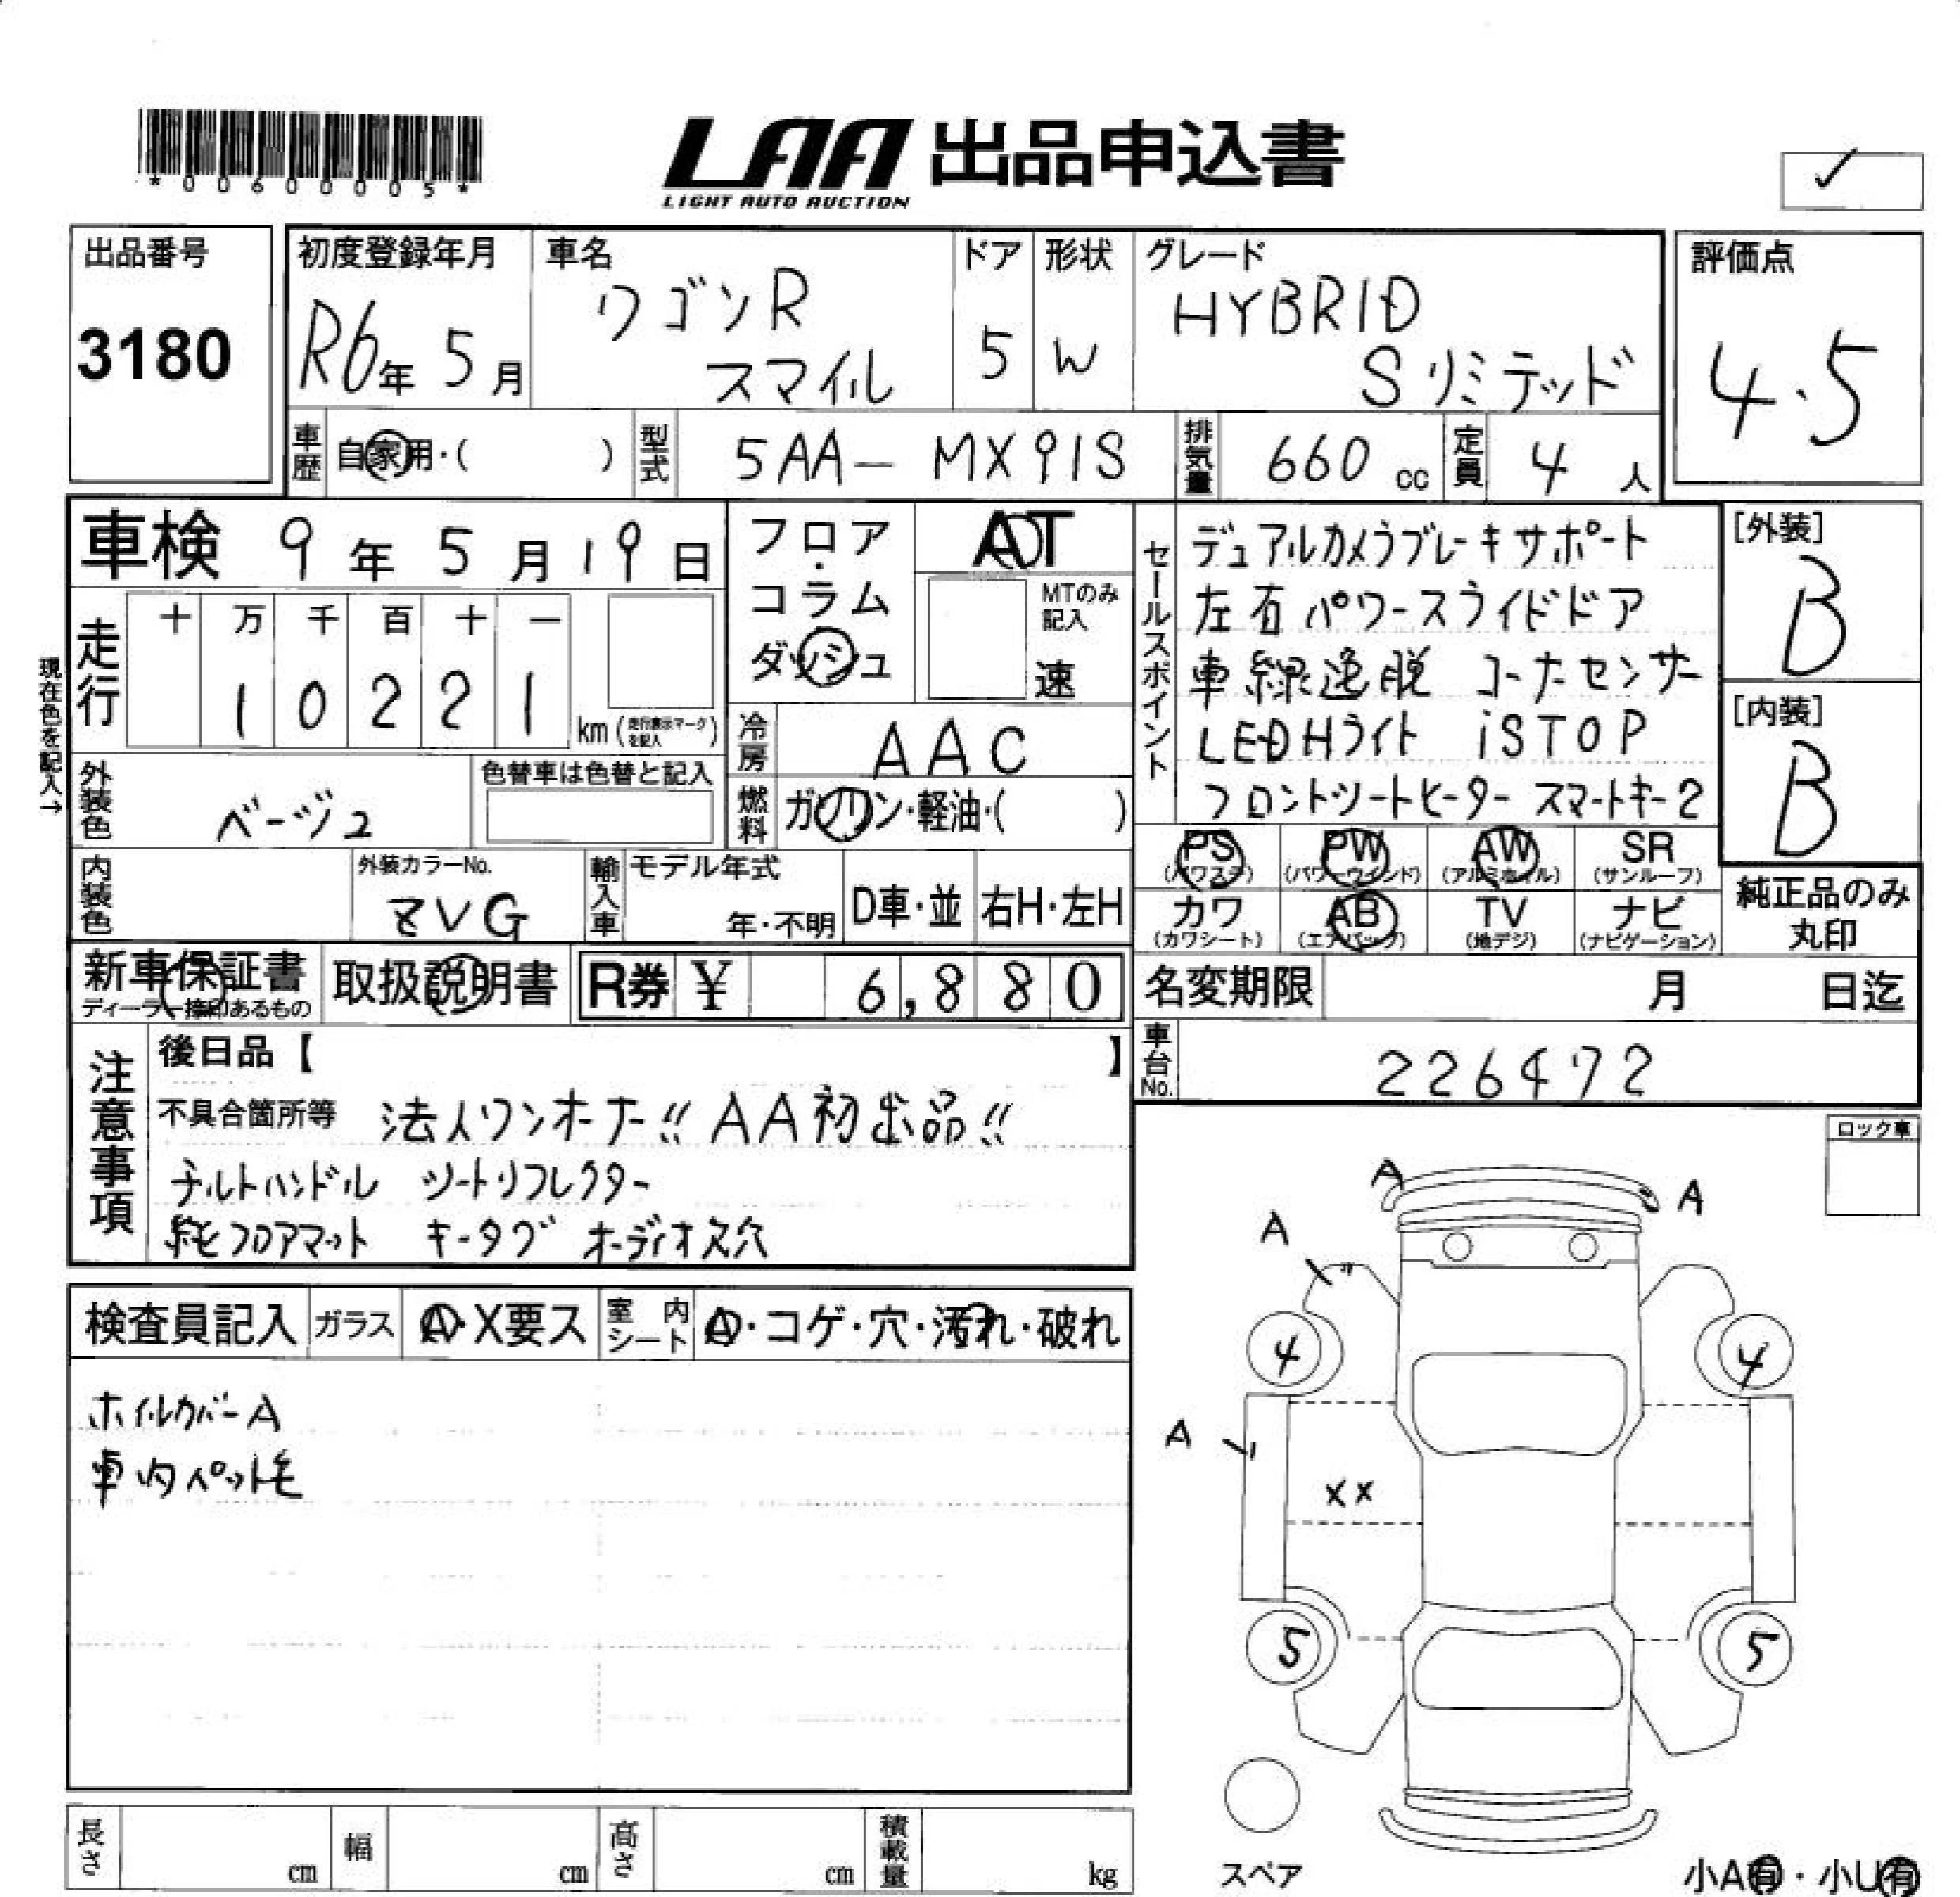 *00600005*
LAA 出品申込書
LIGHT AUTO AUCTION
✓
出品番号
3180
初度登録年月
R6年 5月
車名
ワゴンR
スマイル
ドア
5
形状
W
グレード
HYBRID
Sリミテッド
評価点
4.5
車歴 自家用・( )
型式 5AA- MX91S
排気量 660 cc
定員 4 人
車検 9年 5月 19日
フロア・コラム
ダッシュ
AT
MTのみ記入
速
走行 十 万 千 百 十 一
1 0 2 2 1 km (走行表示マークを記入)
現在色を記入→
冷房 AAC
外装色 ベージュ2
色替車は色替と記入
燃料 ガソリン・軽油・( )
内装色
外装カラーNo.
ZVG
輸入車 モデル年式
年・不明
D車・並
右H・左H
セールスポイント
デュアルカメラブレーキサポート
左右パワースライドドア
車線逸脱 コーナーセンサー
LEDHライト iSTOP
フロントシートヒーター スマートキー2
[外装]
B
[内装]
B
PS (パワステ)
PW (パワーウインド)
AW (アルミホイル)
SR (サンルーフ)
カワ (カワシート)
AB (エアバック)
TV (地デジ)
ナビ (ナビゲーション)
純正品のみ
丸印
新車保証書
ディーラー捺印あるもの
取扱説明書
R券 ¥ 6,880
名変期限 月 日迄
車台No. 226472
注意事項
後日品【 】
不具合箇所等 法人ワンオーナー!! AA初出品!!
チルトハンドル シートリフレクター
純フロアマット キータグ オーディオ欠穴
ロック車
検査員記入 ガラス A・X要ス 室内シート A・コゲ・穴・汚れ・破れ
ホイルカバーA
車内ペット毛
A
A
A
4
4
A
XX
5
5
スペア
小A有・小U有
長さ cm 幅 cm 高さ cm 積載量 kg